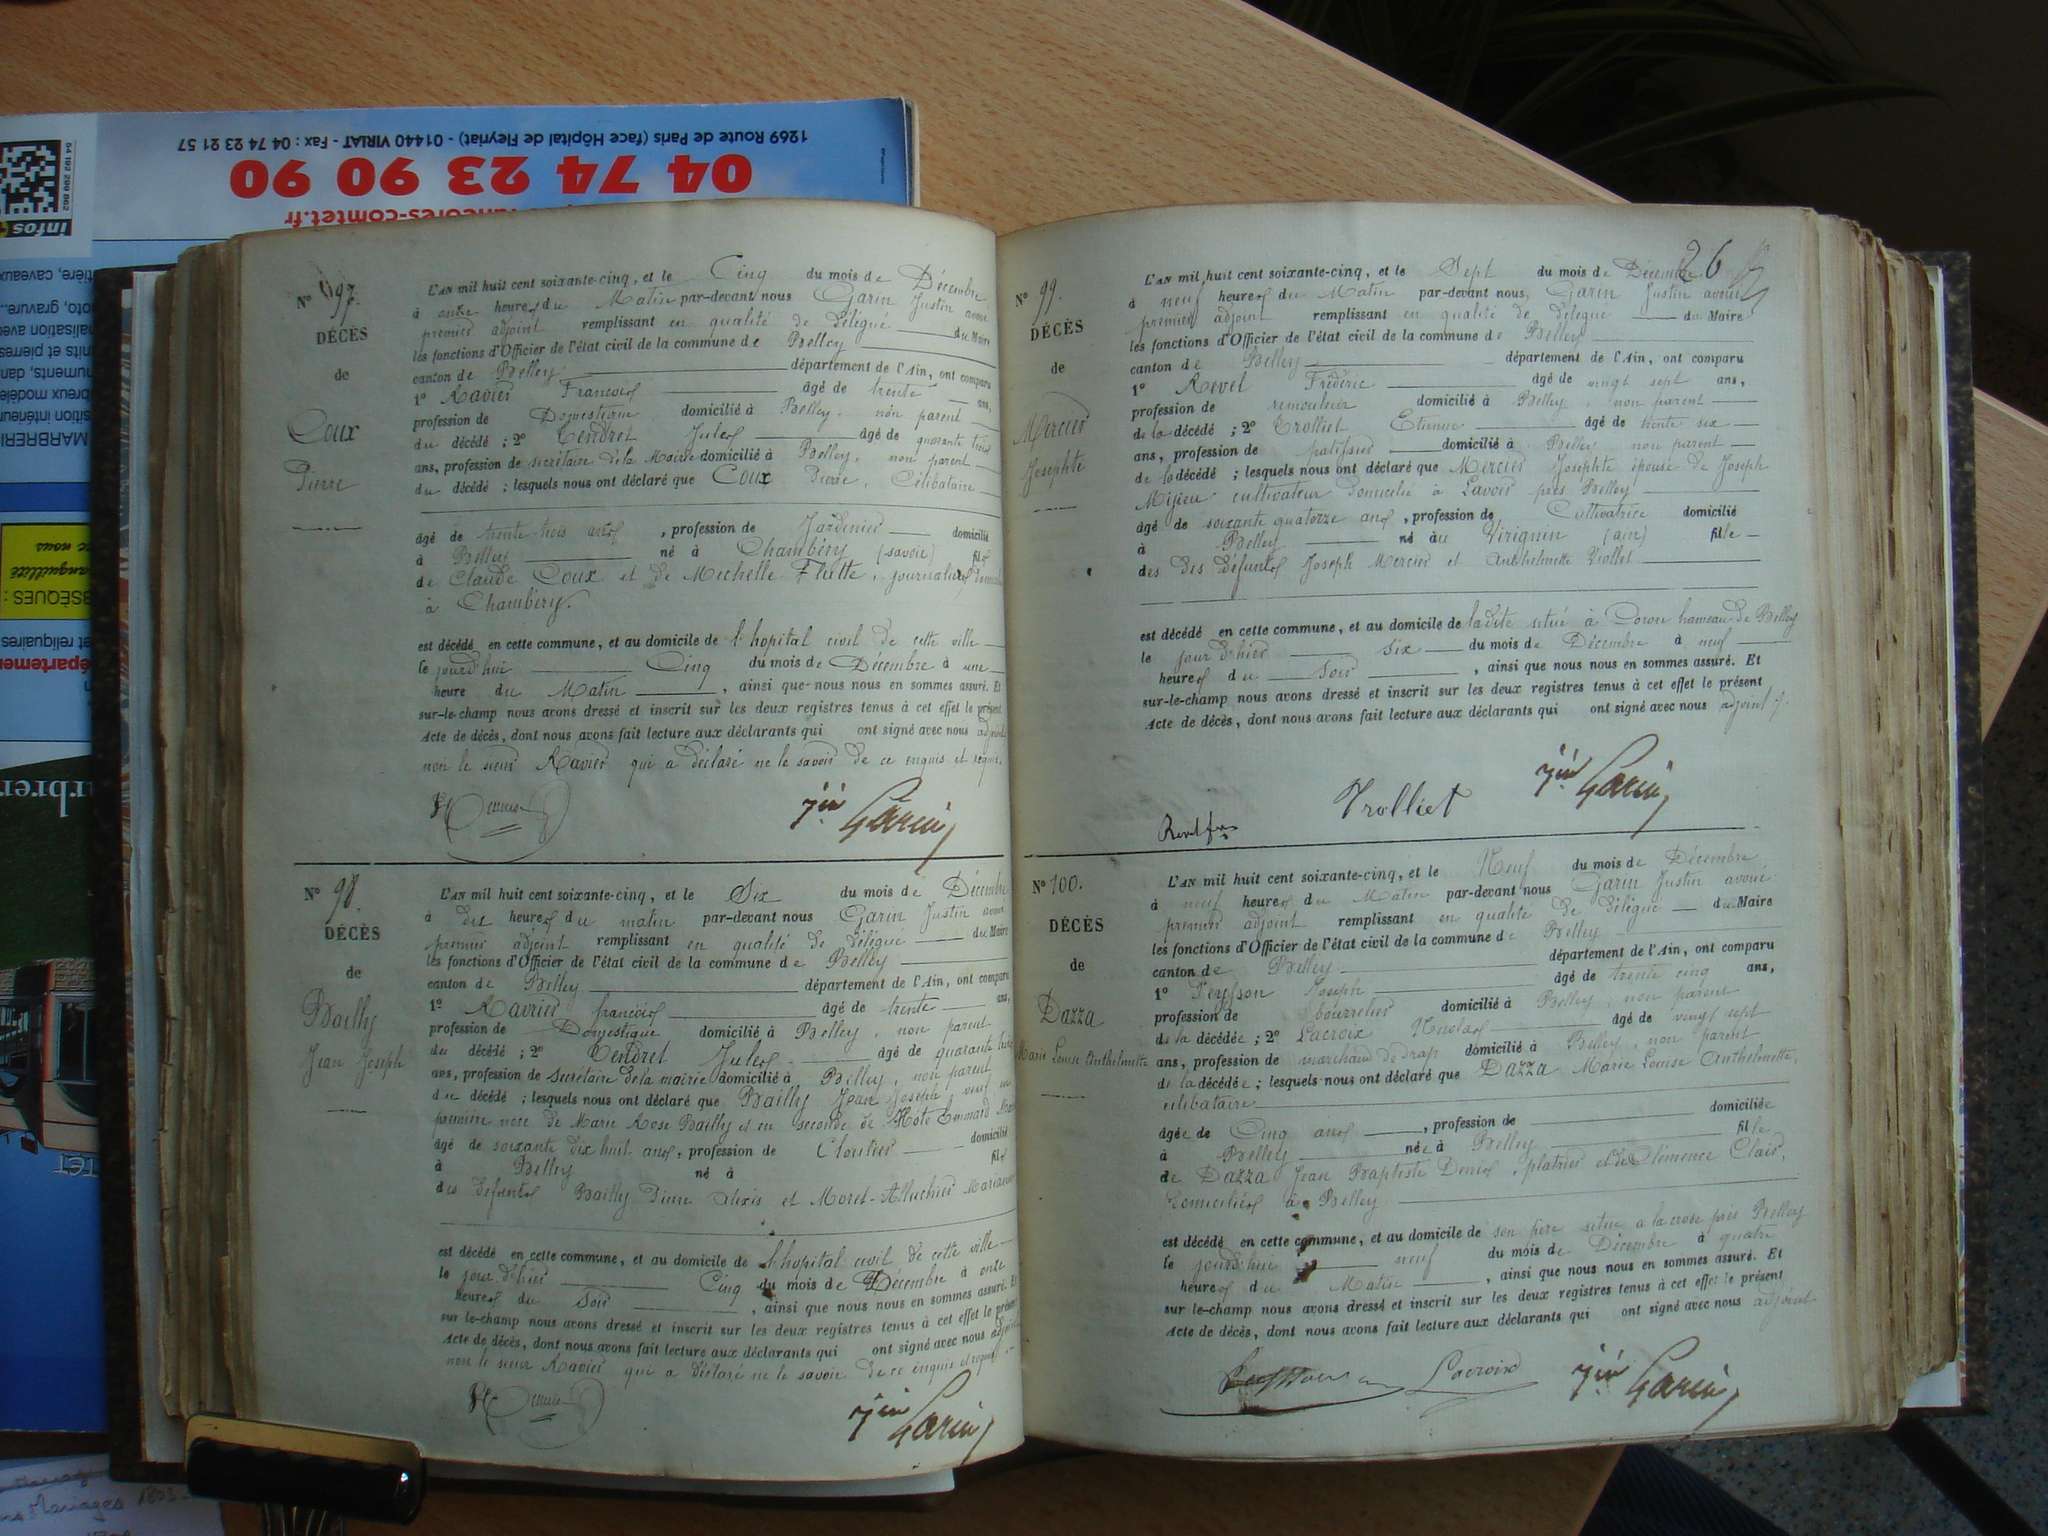 1269 Route de Paris (face Hôpital de Fleyriat) - 01440 VIRIAT - Fax : 04 74 23 21 57
04 74 23 90 90
-comtet.fr
infos
N° 97.
DÉCÈS
de
Coux
Pierre
L'AN mil huit cent soixante-cinq, et le Cinq du mois de Décembre
à onze heures du Matin par-devant nous Garin Justin avoué
premier adjoint remplissant en qualité de délégué du Maire
les fonctions d'Officier de l'état civil de la commune de Belley
canton de Belley département de l'Ain, ont comparu
1° Ravier François âgé de trente ans,
profession de Domestique domicilié à Belley, non parent
du décédé ; 2° Tendret Jules âgé de quarante trois
ans, profession de secrétaire de la Mairie domicilié à Belley, non parent
du décédé ; lesquels nous ont déclaré que Coux Pierre, Célibataire
âgé de trente trois ans, profession de Jardinier domicilié
à Belley né à Chambéry (savoie) fils
de Claude Coux et de Mechelle journaliers
à Chambéry.
est décédé en cette commune, et au domicile de l'hopital civil de cette ville
le jourd'hui Cinq du mois de Décembre à une
heure du Matin, ainsi que nous nous en sommes assuré. Et
sur-le-champ nous avons dressé et inscrit sur les deux registres tenus à cet effet le présent
Acte de décès, dont nous avons fait lecture aux déclarants qui ont signé avec nous adjoint
non le sieur Ravier qui a déclaré ne le savoir de ce enquis et requis.
Jin Garin
N° 98.
DÉCÈS
de
Bailly
Jean Joseph
L'AN mil huit cent soixante-cinq, et le Six du mois de Décembre
à dix heures du matin par-devant nous Garin Justin avoué
premier adjoint remplissant en qualité de délégué du Maire
les fonctions d'Officier de l'état civil de la commune de Belley
canton de Belley département de l'Ain, ont comparu
1° Ravier françois âgé de trente ans,
profession de Domestique domicilié à Belley, non parent
du décédé ; 2° Tendret Jules âgé de quarante trois
ans, profession de secrétaire de la mairie domicilié à Belley, non parent
du décédé ; lesquels nous ont déclaré que Bailly Jean Joseph veuf en
première noce de Marie Rose Bailly et en seconde de
âgé de soixante dix huit ans, profession de Cloutier domicilié
à Belley né à fils
des defunts Bailly Pierre Alexis et Moret
est décédé en cette commune, et au domicile de l'hopital civil de cette ville
le jour d'hier Cinq du mois de Décembre à onze
heures du soir, ainsi que nous nous en sommes assuré. Et
sur le-champ nous avons dressé et inscrit sur les deux registres tenus à cet effet le présent
Acte de décès, dont nous avons fait lecture aux déclarants qui ont signé avec nous adjoint
non le sieur Ravier qui a déclaré ne le savoir de ce enquis et requis
Jin Garin
26
N° 99.
DÉCÈS
de
Mercier
Josephte
L'AN mil huit cent soixante-cinq, et le Sept du mois de Décembre
à neuf heures du Matin par-devant nous, Garin Justin avoué
premier adjoint remplissant en qualité de délégué du Maire
les fonctions d'Officier de l'état civil de la commune de Belley
canton de Belley département de l'Ain, ont comparu
1° Revel Frédéric âgé de vingt sept ans,
profession de remouleur domicilié à Belley, non parent
de la décédé ; 2° Trolliet Etienne âgé de trente six
ans, profession de patissier domicilié à Belley non parent
de la décédé ; lesquels nous ont déclaré que Mercier Josephte épouse de Joseph
Mijieu cultivateur domicilié à Lavoir près Belley
âgé de soixante quatorze ans, profession de Cultivatrice domicilié
à Belley né au Virignin (ain) fille
des des défunts Joseph Mercier et Anthelmette Viollet
est décédé en cette commune, et au domicile de ladite situé à hameau de Belley
le jour d'hier six du mois de Décembre à neuf
heures du soir, ainsi que nous nous en sommes assuré. Et
sur-le-champ nous avons dressé et inscrit sur les deux registres tenus à cet effet le présent
Acte de décès, dont nous avons fait lecture aux déclarants qui ont signé avec nous adjoint
Trolliet
Jin Garin
N° 100.
DÉCÈS
de
Dazza
Marie Louise Anthelmette
L'AN mil huit cent soixante-cinq, et le Neuf du mois de Décembre
à neuf heures du Matin par-devant nous Garin Justin avoué
premier adjoint remplissant en qualité de délégué du Maire
les fonctions d'Officier de l'état civil de la commune de Belley
canton de Belley département de l'Ain, ont comparu
1° Peysson Joseph âgé de trente cinq ans,
profession de bourrelier domicilié à Belley, non parent
de la décédée ; 2° Lacroix Nicolas âgé de vingt sept
ans, profession de marchand de drap domicilié à Belley, non parent
de la décédée ; lesquels nous ont déclaré que Dazza Marie Louise Anthelmette,
célibataire
âgée de Cinq ans, profession de domiciliée
à Belley née à Belley fille
de Dazza Jean Baptiste Denis, platrier et de Clémence Clair,
domiciliés à Belley
est décédé en cette commune, et au domicile de son père situé a la croze près Belley
le jourd'hui neuf du mois de Décembre à quatre
heures du Matin, ainsi que nous nous en sommes assuré. Et
sur le-champ nous avons dressé et inscrit sur les deux registres tenus à cet effet le présent
Acte de décès, dont nous avons fait lecture aux déclarants qui ont signé avec nous adjoint
Lacroix
Jin Garin